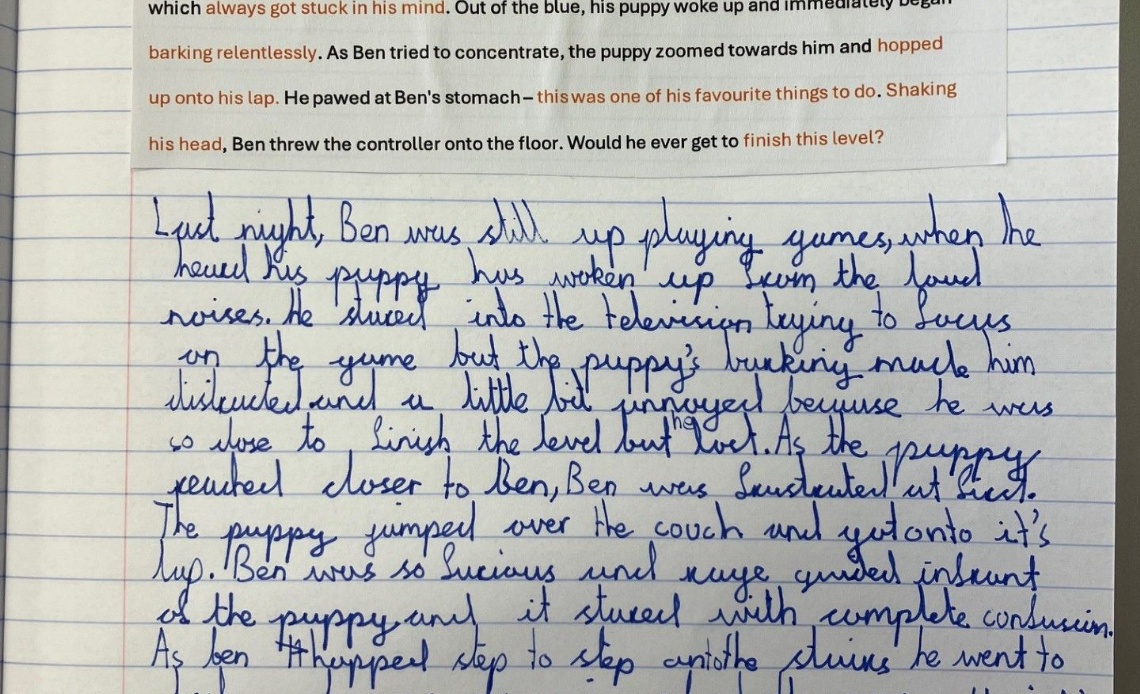 which always got stuck in his mind. Out of the blue, his puppy woke up and immediately began
barking relentlessly. As Ben tried to concentrate, the puppy zoomed towards him and hopped
up onto his lap. He pawed at Ben's stomach – this was one of his favourite things to do. Shaking
his head, Ben threw the controller onto the floor. Would he ever get to finish this level?
Last night, Ben was still up playing games, when he
heard his puppy has woken up from the loud
noises. He stared into the television trying to focus
on the game but the puppy's barking made him
distracted and a little bit annoyed because he was
so close to finish the level but he lost. As the puppy
reached closer to Ben, Ben was frustrated at first.
The puppy jumped over the couch and got onto it's
lap. Ben was so furious and rage quited infront
of the puppy and it stared with complete confusion.
As ben hopped step to step the stairs he went to